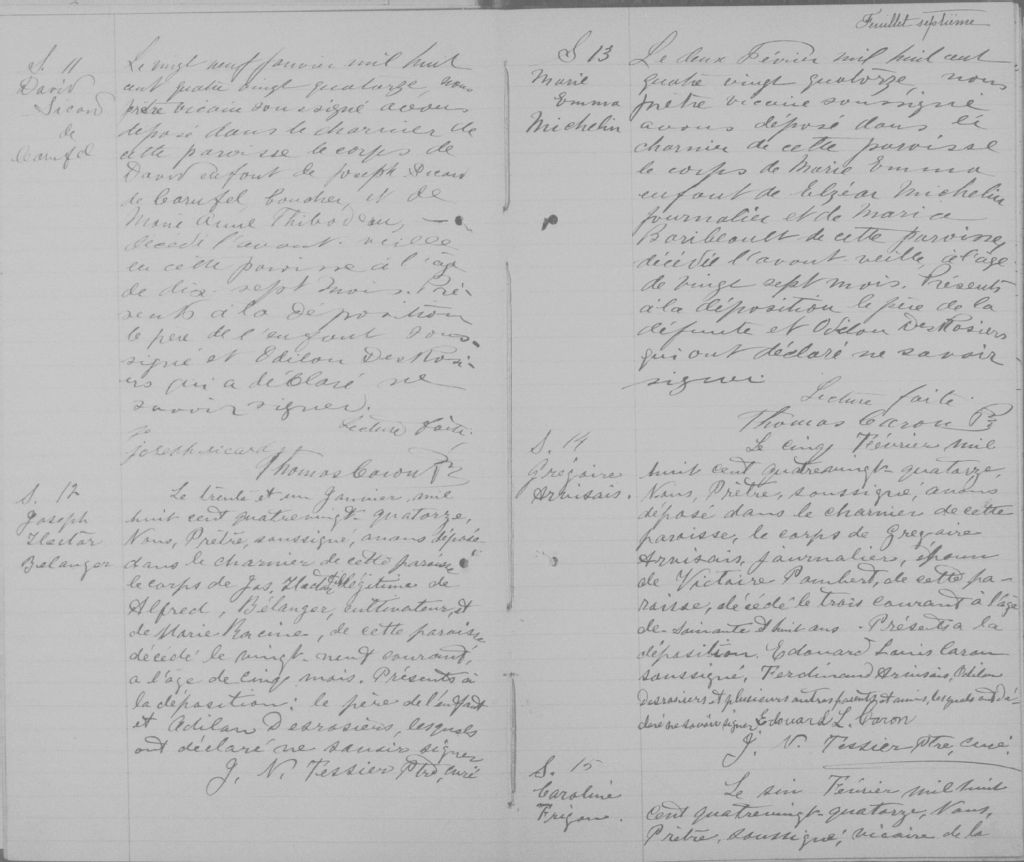 S. 11
David
Sicard
de
Carufel
Le vingt neuf Janvier mil huit
cent quatre vingt quatorze, nous
prêtre vicaire soussigné avons
déposé dans le charnier de
cette paroisse le corps de
David enfant de Joseph Sicard
de Carufel boucher, et de
Marie Anne Thibodeau,
décédé l'avant-veille
en cette paroisse à l'âge
de dix-sept mois. Pré-
sents à la déposition
le père de l'enfant sous-
signé et Odilon DesRosi-
ers qui a déclaré ne
savoir signer.
Lecture faite.
joseph sicard
Thomas Caron Ptre
S. 12
Joseph
Hector
Belanger
Le trente et un Janvier, mil
huit cent quatrevingt-quatorze,
Nous, Prêtre, soussigné, avons déposé
dans le charnier de cette paroisse
le corps de Jos. Hector fils légitime de
Alfred, Bélanger, cultivateur, et
de Marie Racine, de cette paroisse,
décédé le vingt-neuf courant,
a l'âge de cinq mois. Présents à
la déposition: le père de l'enfant
et Adilon Desrosiers, lesquels
ont déclaré ne savoir signer
J. N. Tessier Ptre, curé
Feuillet septième
S 13
Marie
Emma
Michelin
Le deux Février mil huit cent
quatre vingt quatorze, nous
prêtre vicaire soussigné
avons déposé dans le
charnier de cette paroisse
le corps de Marie Emma
enfant de Elzéar Michelin
journalier et de Marie
Baribeault de cette paroisse,
décédée l'avant veille, à l'âge
de vingt sept mois. Présents
à la déposition le père de la
défunte et Odilon DesRosiers
qui ont déclaré ne savoir
signer.
Lecture faite.
Thomas Caron Ptre
S. 14
Grégoire
Arvisais.
Le cinq Février mil
huit cent quatrevingt-quatorze,
Nous, Prêtre, soussigné, avons
déposé dans le charnier de cette
paroisse, le corps de Gregoire
Arvisais, journalier, époux
de Victoire Lambert, de cette pa-
roisse, décédé le trois courant à l'âge
de soixante et huit ans. Présents a la
déposition. Edouard Louis Caron
soussigné, Ferdinand Arvisais, Odilon
Desrosiers et plusieurs autres parents et amis, lesquels ont dé-
claré ne savoir signer Edouard L. Caron
J. N. Tessier Ptre, curé.
S. 15
Caroline
Frigone.
Le six Février mil huit
cent quatrevingt-quatorze, Nous,
Prêtre, soussigné, vicaire de la